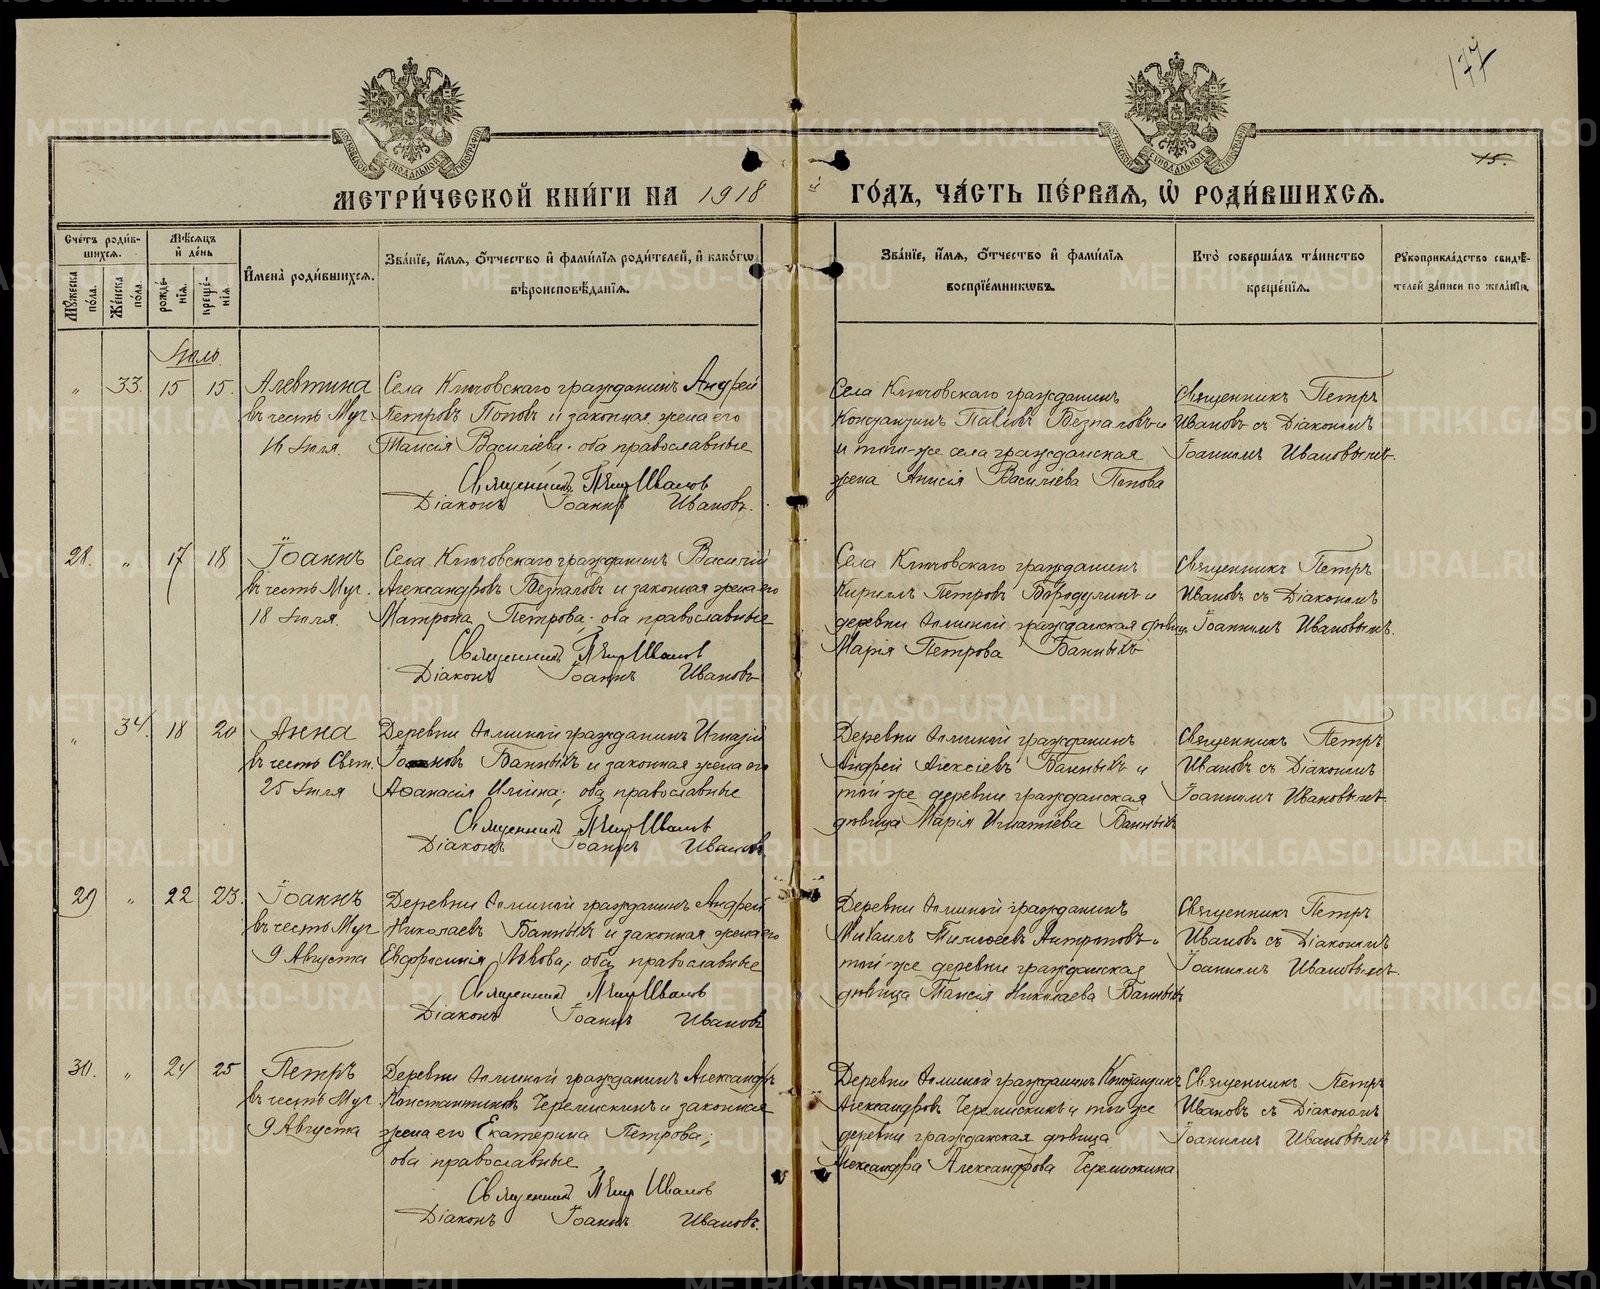 177
15.
МЕТРИ́ЧЕСКОЙ КНИ́ГИ НА 1918 й ГО́ДЪ, ЧА́СТЬ ПЕ́РВАѦ, Ѡ҆ РОДИ́ВШИХСѦ.
Сче́тъ роди́в-
шихсѧ.
Мѣ́сѧцъ
и҆ де́нь
И҆мена̀ роди́вшихсѧ.
Зва́нїе, и҆́мѧ, ѻ҆́тчество и҆ фами́лїѧ роди́телей, и҆ како́гѡ
вѣроисповѣ́данїѧ.
Зва́нїе, и҆́мѧ, ѻ҆́тчество и҆ фами́лїѧ
воспрїе́мникѡвъ.
Кто̀ соверша́лъ та́инство
креще́нїѧ.
Рꙋкоприкла́дство свидѣ́-
телей за́писи по жела́нїю.
Мꙋ́жеска по́ла.
Же́нска по́ла.
рожде́-
нїѧ.
креще́-
нїѧ.
Іюль
„ 33. 15 15.
Алевтина
въ честь Муч.
16 Іюля.
Села Ключовскаго гражданинъ Андрей
Петровъ Поповъ и законная жена его
Таисія Василіева. оба православные
Священникъ Петр Иванов
Діаконъ Іоаннъ Ивановъ.
Села Ключовскаго гражданинъ
Константинъ Павловъ Безпаловъ и
и того-же села гражданская
жена Анисія Василіева Попова
Священникъ Петръ
Ивановъ съ Діакономъ
Іоанномъ Ивановымъ.
28. „ 17 18
Іоаннъ
въ честь Муч.
18 Іюля.
Села Ключовскаго гражданинъ Василій
Александровъ Безпаловъ и законная жена его
Матрона Петрова. оба православные
Священникъ Петр Иванов
Діаконъ Іоаннъ Ивановъ
Села Ключовскаго гражданинъ
Кириллъ Петровъ Бородулинъ и
деревни гражданская дѣвица
Марія Петрова Банныхъ
Священникъ Петръ
Ивановъ съ Діакономъ
Іоанномъ Ивановымъ.
„ 34. 18 20
Анна
въ честь Свят.
25 Іюля
Деревни гражданинъ Игнатій
Банныхъ и законная жена его
Аѳанасія Иліина; оба православные
Священникъ Петр Иванов
Діаконъ Іоаннъ Ивановъ
Деревни гражданинъ
Андрей Алексіевъ Банныхъ и
той же деревни гражданская
дѣвица Марія Игнатіева Банныхъ
Священникъ Петръ
Ивановъ съ Діакономъ
Іоанномъ Ивановымъ.
29 „ 22 23.
Іоаннъ
въ честь Муч
9 Августа
Деревни гражданинъ Андрей
Николаевъ Банныхъ и законная жена его
Евфросинія Львова; оба православные
Священникъ Петр Иванов
Діаконъ Іоаннъ Ивановъ
Деревни гражданинъ
Михаилъ Тимоѳеевъ Антроповъ и
той-же деревни гражданская
дѣвица Таисія Николаева Банныхъ
Священникъ Петръ
Ивановъ съ Діакономъ
Іоанномъ Ивановымъ.
30. „ 24 25
Петръ
въ честь Муч.
9 Августа
Деревни гражданинъ Александръ
Константиновъ Черемискинъ и законная
жена его Екатерина Петрова;
оба православные
Священникъ Петр Иванов
Діаконъ Іоаннъ Ивановъ.
Деревни гражданинъ Константинъ
Александровъ Черемискинъ и той же
деревни гражданская дѣвица
Александра Александрова Черемискина
Священникъ Петръ
Ивановъ съ Діакономъ
Іоанномъ Ивановымъ
METRIKI.GASO-URAL.RU